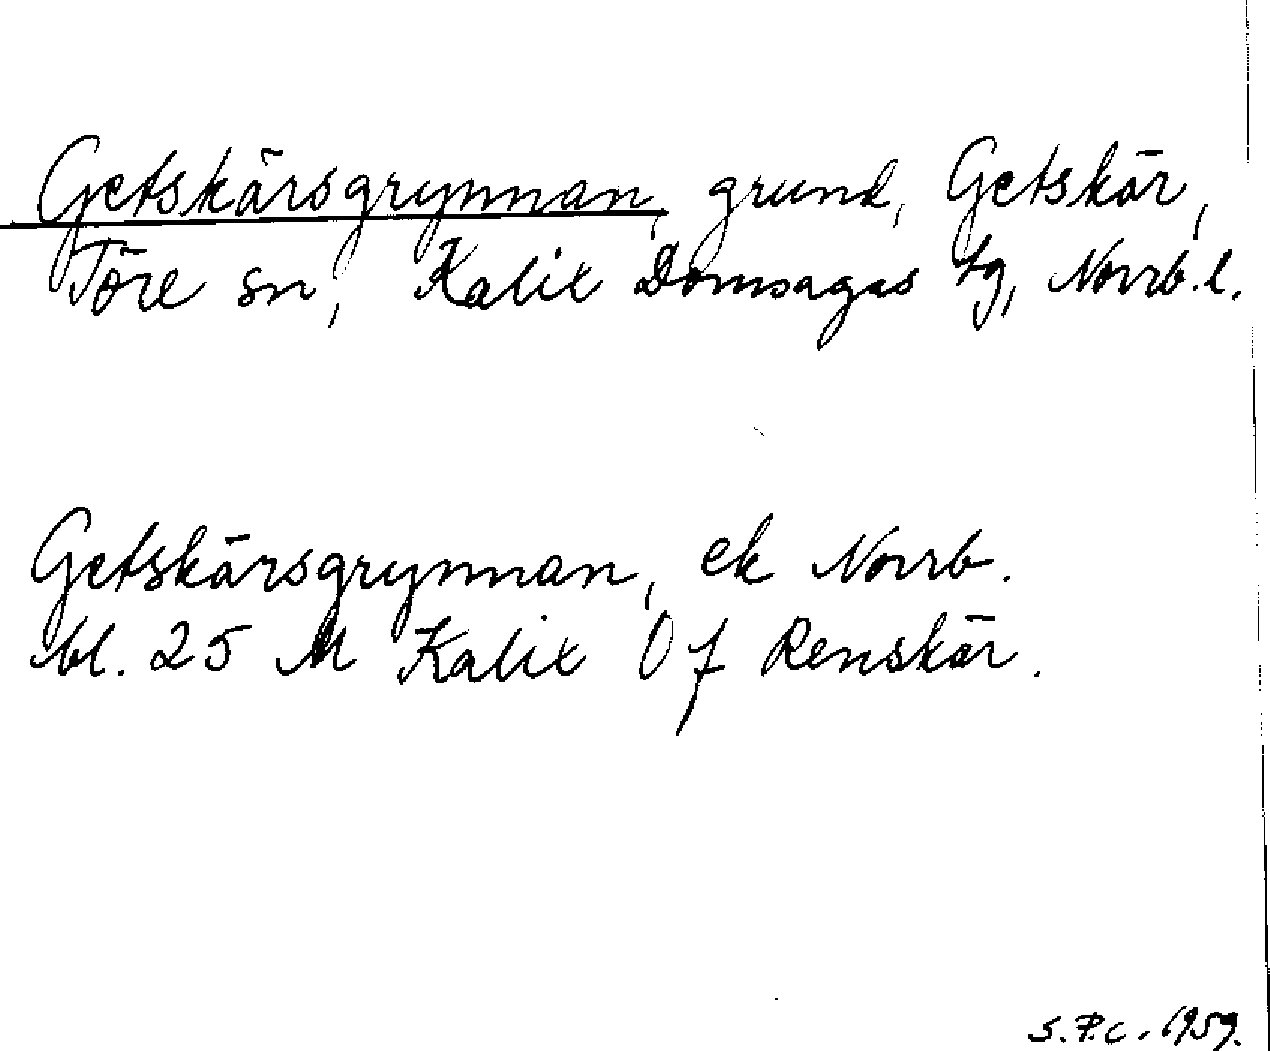 Getskärsgrynnan, grund, Getskär,
Töre sn, Kalix Domsagas tg, Norrb. l.
Getskärsgrynnan, ek Norrb.
bl. 25 M Kalix Ö f Renskär.
S.P.C. 1959.